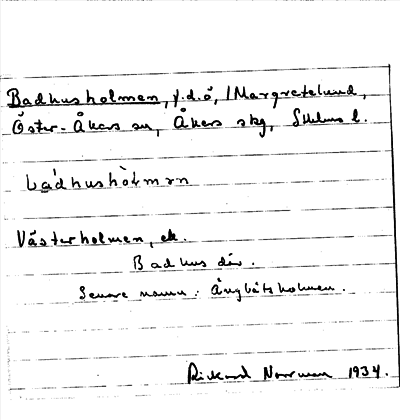 Badhusholmen, f.d. ö, /Margretelund,
Öster-Åkers sn, Åkers skg, Sthlms l.
bádhushòlmɘn
Västerholmen, ek.
Badhus där.
Senare namn: Ångbåtsholmen.
Rickard Norrman 1934.